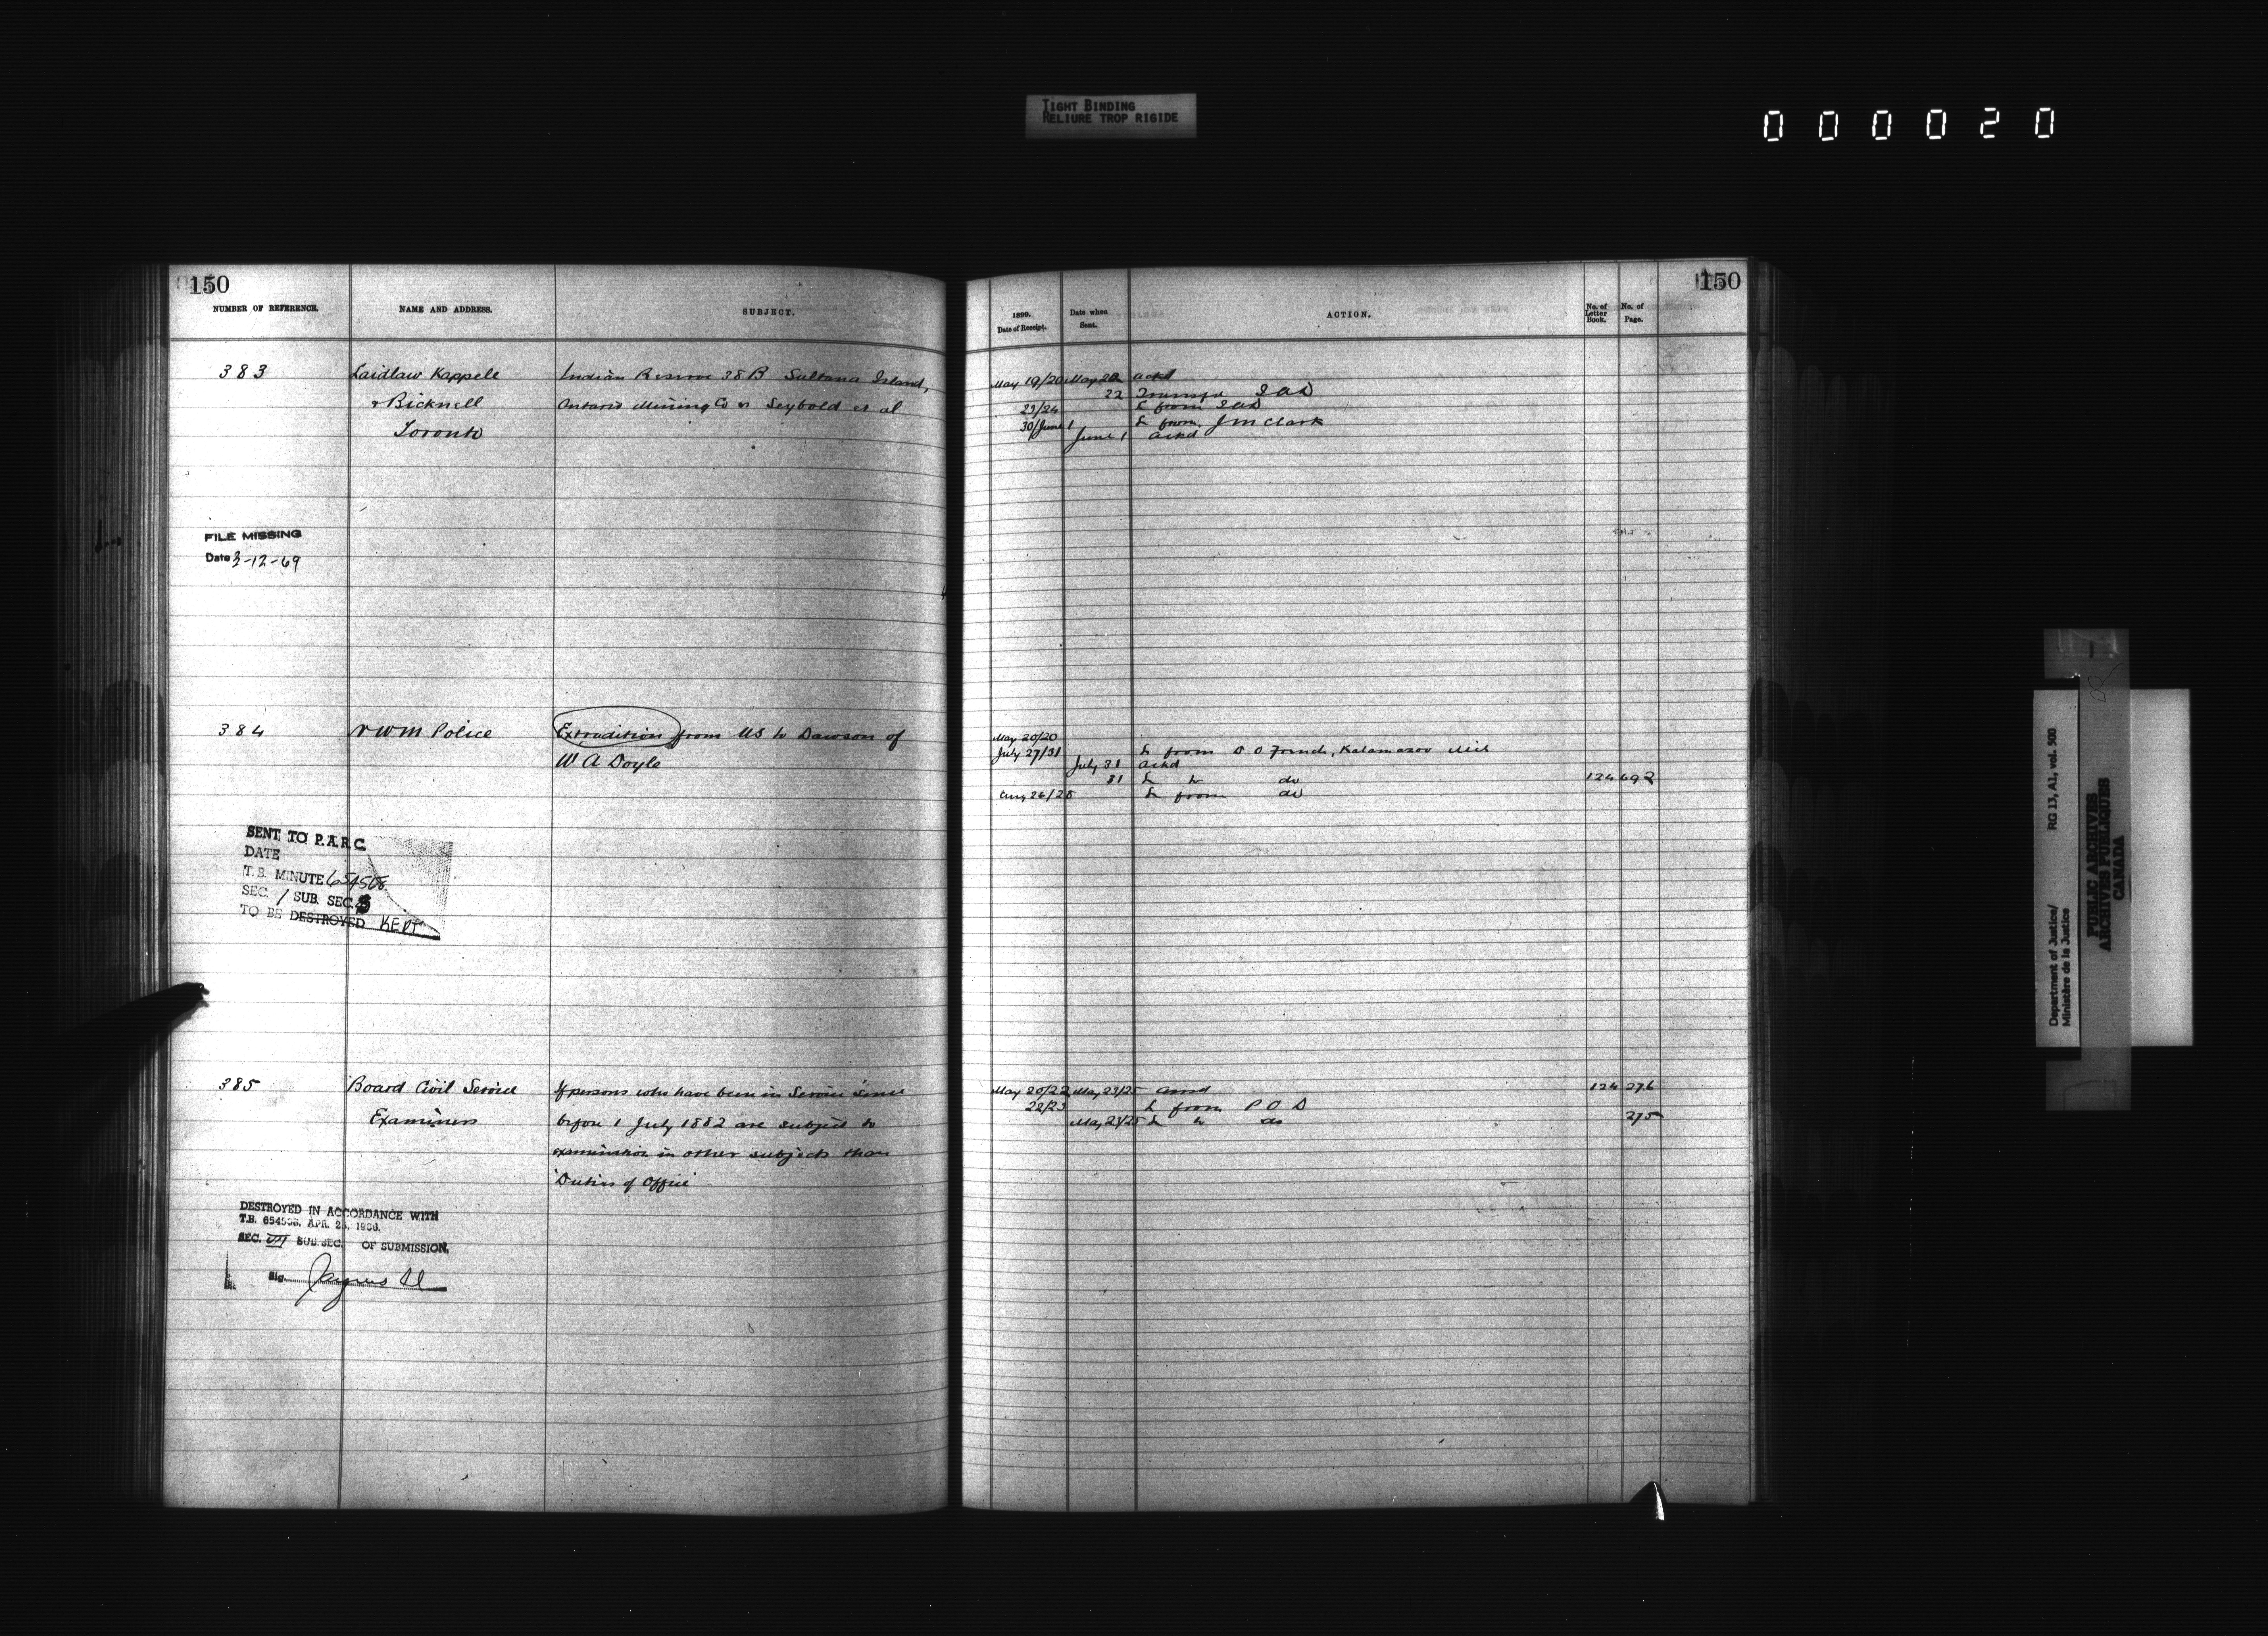 TIGHT BINDING
RELIURE TROP RIGIDE
000020
150
NUMBER OF REFERENCE.
NAME AND ADDRESS.
SUBJECT.
383
Laidlaw Kappele
& Bicknell
Toronto
Indian Reserve 38B Sultana Island,
Ontario Mining Co vs Seybold et al
FILE MISSING
Date 3-12-69
384
NWM Police
Extradition from US to Dawson of
W A Doyle
SENT TO P.A.R.C.
DATE
T.B. MINUTE 654508
SEC. 1 SUB. SEC. 3
TO BE DESTROYED KEPT
385
Board Civil Service
Examiners
If persons who have been in Service since
before 1 July 1882 are subject to
examination in other subjects than
Duties of Office
DESTROYED IN ACCORDANCE WITH
T.B. APR.
SEC. VII SUB. SEC. OF SUBMISSION.
Sig.
150
1899.
Date of Receipt.
Date when
Sent.
ACTION.
No. of
Letter
Book.
No. of
Page.
May 19/20 May 20 ackd
22 Transfr
23/24 L from
30/June 1 L from J M Clark
June 1 ackd
May 20/20
July 27/31 L from Kalamazoo Mich
July 31 ackd
31 L to do 124 692
Aug 26/28 L from do
May 20/22 May 23/25 ansd 124 276
22/23 L from P O D
May 23/25 L to do 275
Department of Justice/
Ministère de la Justice
RG 13, A1, vol. 500
PUBLIC ARCHIVES
ARCHIVES PUBLIQUES
CANADA